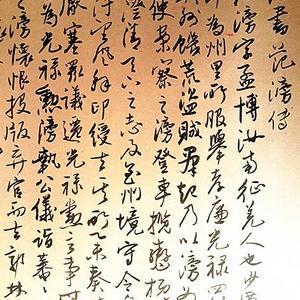 書范滂傳
滂字孟博汝南征羌人也少
為州里所服舉孝廉光祿四
州饑荒盜賊群起乃以滂為
使案察之滂登車攬轡慨
澄清天下之志及至州境守令自
汙望風解印綬去其所舉奏莫
厭塞眾議遷光祿勳主事時
為光祿勳滂執公儀詣蕃蕃
之滂懷恨投版棄官而去郭林